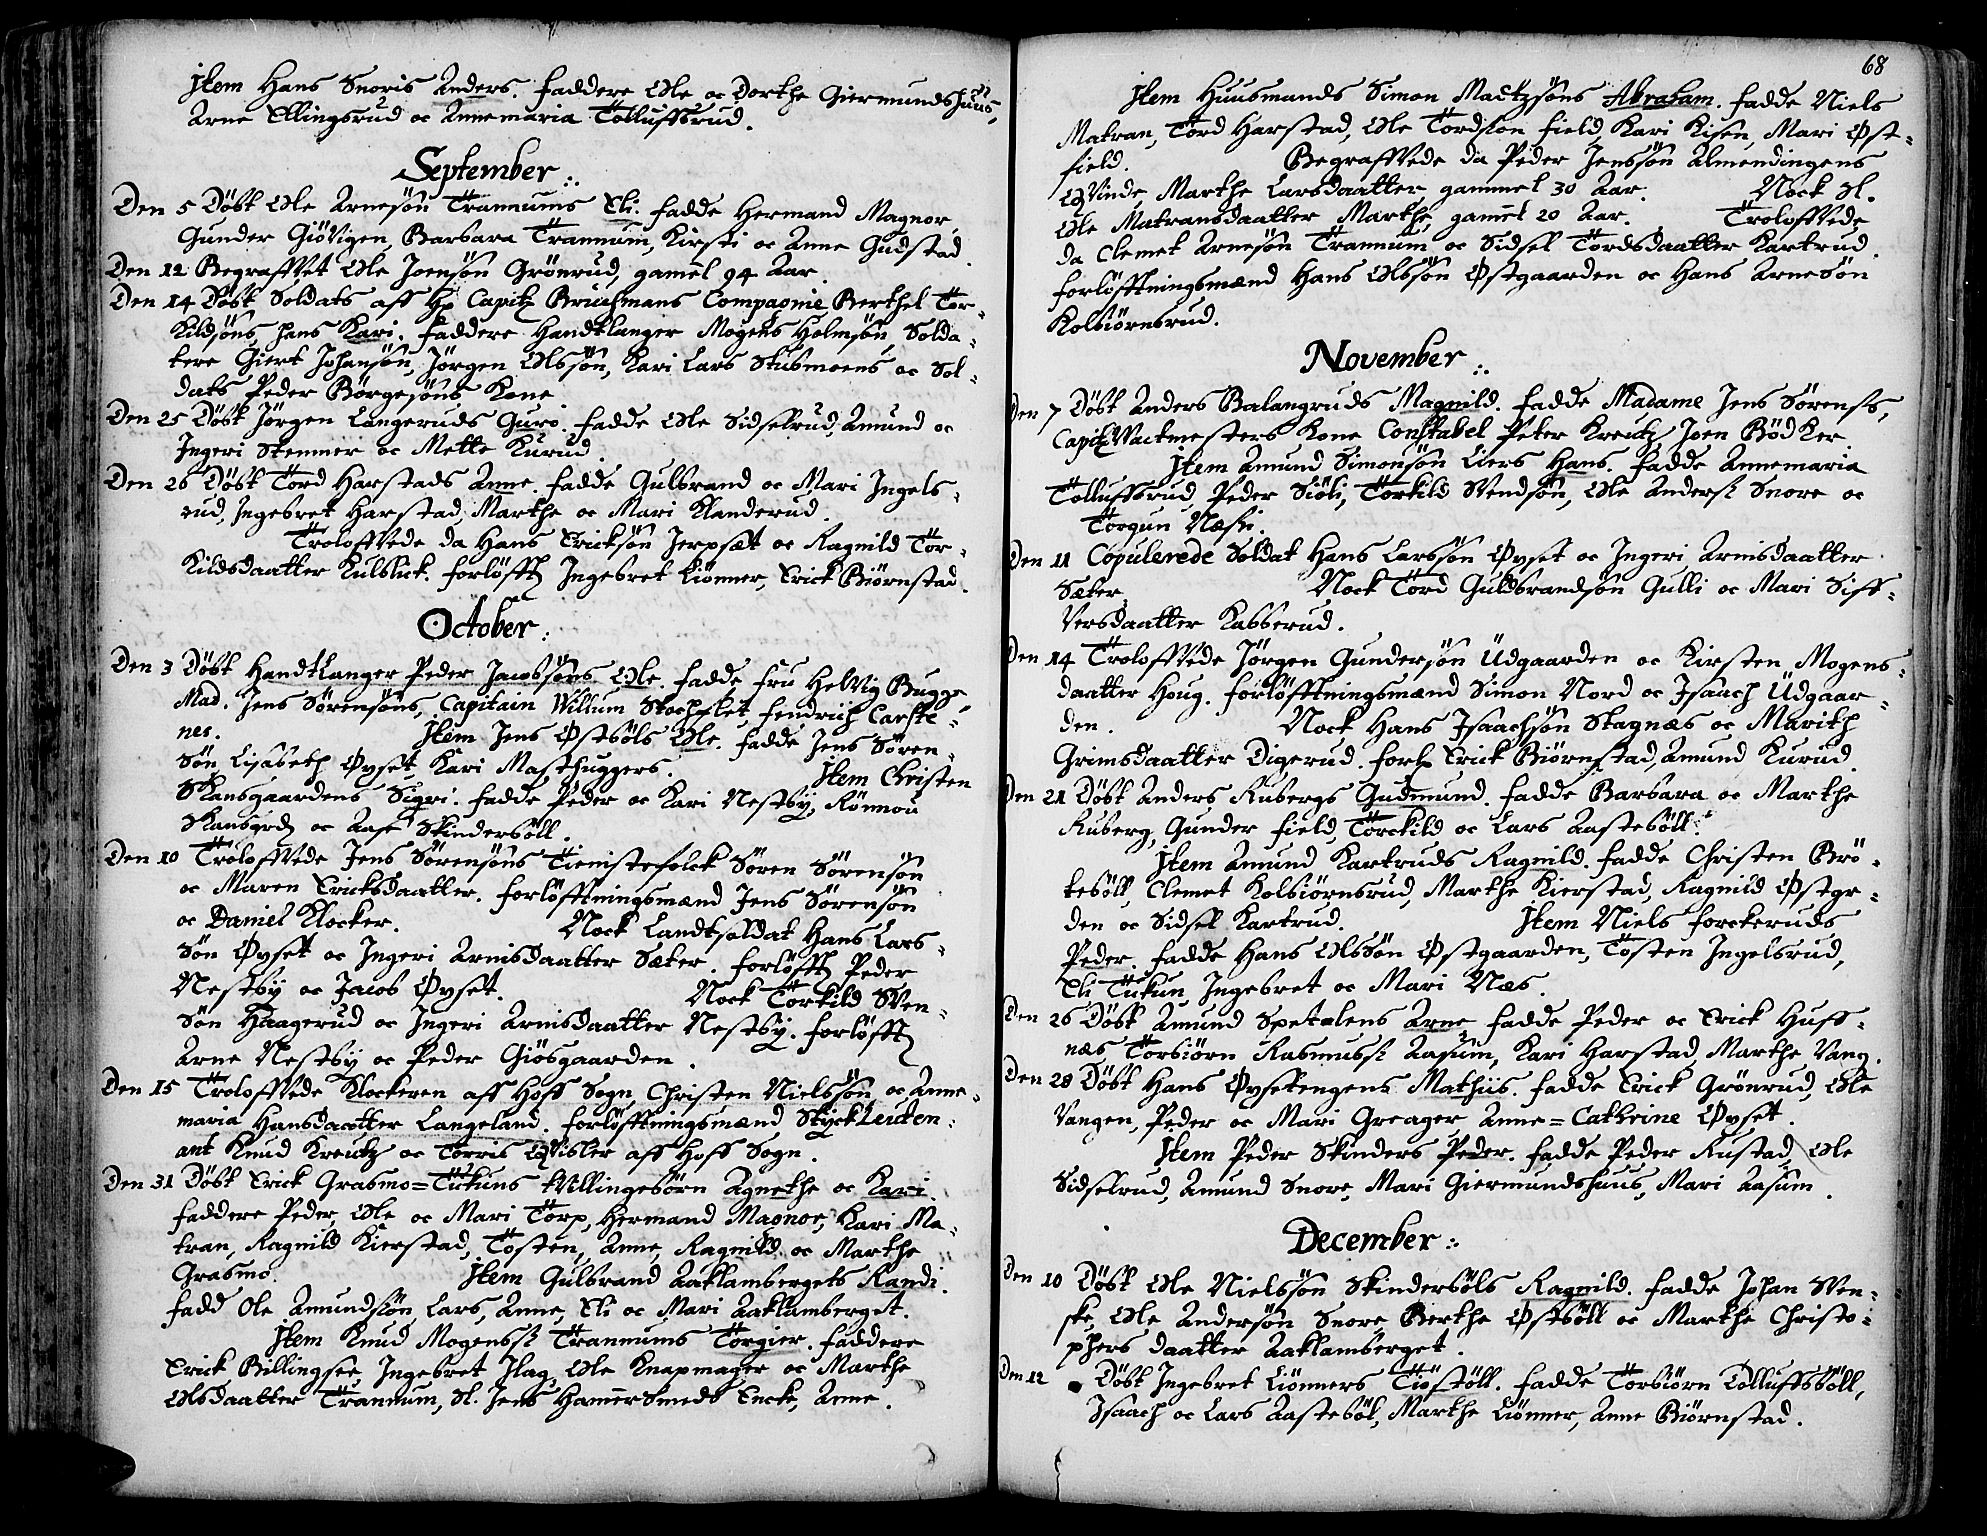 Item Hans Snoris Anders. faddere Ole oc Dorthe Giermundshuus,
Arne Ellingsrud oc Annemaria Tolluffsrud.
September
Den 5 Döbt Ole Arnesön Trannums Eli. fadde Hermand Magnor,
Gunder Giövigen, Barbara Trannum, Kirsti oc Anne Gudstad.
Den 12 Begraffvet Ole Joensön Grönrud, gamel 94 Aar.
Den 14 Döbt Soldats aff Hr Capit Compagnie Berthel Tor-
kildsöns, hans Kari. faddere Handtlanger Mogens Holmsön, Solda-
tere Giert Johansön, Jörgen Olssön, Kari Lars Stubmoens oc Sol-
dats Peder Börgesöns Kone.
Den 25 Döbt Jörgen Langeruds Guro. fadde Ole Sidselrud, Amund oc
Ingeri Stemmer oc Mette Kurud.
Den 26 Döbt Tord Harstads Anne. fadde Gulbrand oc Mari Ingels-
rud, Ingebret Harstad, Marthe oc Mari Klanderud.
Troloffvede da Hans Ericksön Jerpset oc Ragnild Tor-
kildsdaatter Kulblick. forlöfft Ingebret Liönner, Erick Biörnstad.
October
Den 3 Döbt Handtlanger Peder Jacobsöns Ole. fadde Fru Helvig Bugge
Mad. Jens Sörensöns, Capitain Willum Stochflet, Fendrich Carste-
nes. Item Jens Östböls Ole. fadde Jens Sören-
sön Lisabeth Öyset, Kari Masthuggers. Item Christen
Skansgaardens Sigri. fadde Peder oc Kari Nestby, Rönnou
Skansgrd oc Aase Skinderböll.
Den 10 Troloffvede Jens Sörensöns Tienistefolck Sören Sörensön
oc Maren Ericksdaatter. forlöfftningsmænd Jens Sörensön
oc Daniel Klocker. Nock Landtsoldat Hans Lars-
sön Öyset oc Ingeri Arnisdaatter Sæter. forlöfft Peder
Nestby oc Jacob Öyset. Nock Torkild Sven-
sön Haagerud oc Ingeri Arnisdaatter Nestby. forlöfft
Arne Nestby oc Peder Giösgaarden.
Den 15 Troloffvede Klockeren aff Hoff Sogn, Christen Nielssön, oc Anne-
maria Hansdaatter Langeland. forlöfftningsmænd StyckLeuten-
ant Knud Kreutz oc Torris Qvisler aff Hoff Sogn.
Den 31 Döbt Erick Grasmo=Tukuns tvillingebörn Agnethe oc Kari.
faddere Peder, Ole oc Mari Torp, Hermand Magnor, Kari Ma-
tran, Ragnild Kierstad, Tosten, Anne, Ragnild oc Marthe
Grasmo. Item Gulbrand Aaklambergets Randi.
fadd Ole Amundsön, Lars, Anne, Eli oc Mari Aaklamberget.
Item Knud Mogenss Trannums Torgier. faddere
Erick Billingsee, Ingebret Ilag, Ole Knapmager oc Marthe
Olsdaatter Trannum, Sl. Jens Hamersmeds Encke, Anne.
68
Item Huusmands Simon Madtzsöns Abraham. fadde Niels
Matran, Tord Harstad, Ole Tordsson Field, Kari Kisen, Mari Öst-
field. Begraffvede da Peder Jenssön Almendingens
Qvinde, Marthe Larsdaatter gammel 30 Aar. Nock Sl.
Ole Matransdaatter Marthe, gamel 20 Aar. Troloffvede
da Clemet Arnesön Trannum oc Sidsel Tordsdaatter Kartrud.
forlöfftningsmænd Hans Olssön Östgaarden oc Hans Arnesön
Kolbiörnsrud.
November
Den 7 Döbt Anders Balangruds Magnild. fadde Madame Jens Sörenss,
Capit Wactmesters Kone Constabel Peter Kreutz, Joen Bödker.
Item Amund Simonsön Liers Hans. fadde Annemaria
Tolluffsrud, Peder Siöli, Torkild Svendsön, Ole Anderss Snore oc
Torgun Næsti.
Den 11 Copulerede Soldat Hans Larssön Öyset oc Ingeri Arnisdaatter
Sæter. Nock Tord Guldbrandsön Gulli oc Mari Siff-
versdaatter Kabberud.
Den 14 Troloffvede Jörgen Gundersön Udgaarden oc Kirsten Mogens-
daatter Houg. forlöfftningsmænd Simon Nord oc Isaach Udgaar-
den. Nock Hans Isaachsön Stagnæs oc Marith
Grimsdaatter Digerud. forl Erick Biörnstad, Amund Kurud.
Den 21 Döbt Anders Rubergs Gudmund. fadde Barbara oc Marthe
Ruberg, Gunder Field, Torckild oc Lars Aasteböll.
Item Amund Kartruds Ragnild. fadde Christen Brö-
teböll, Clemet Kolbiörnsrud, Marthe Kierstad, Ragnild Östgr-
den oc Sidsel Kartrud. Item Niels Forckeruds
Peder. fadde Hans Olssön Östgaarden, Tosten Ingelsrud,
Eli Tukun, Ingebret oc Mari Næs.
Den 26 Döbt Amund Spetalens Arne. fadde Peder oc Erick Huff-
næs, Torbiörn Rasmuss Aasum, Kari Harstad, Marthe Vang.
Den 28 Döbt Hans Öysettengens Mathiis. fadde Erick Grönrud, Ole
Vangen, Peder oc Mari Greager, Anne=Cathrine Öyset.
Item Peder Skinders Peder. fadde Peder Rustad, Ole
Sidselrud, Amund Snore, Mari Giermundshuus, Mari Aasum.
December
Den 10 Döbt Ole Nielssön Skinderböls Ragnild. fadde Johan Sven-
ske, Ole Andersön Snore, Berthe Östböll oc Marthe Christo-
phers daatter Aaklamberget.
Den 12 Döbt Ingebret Liönners Tiöstöll. fadde Torbiörn Tolluffsböll,
Isaach oc Lars Aasteböl, Marthe Liönner, Anne Biörnstad.